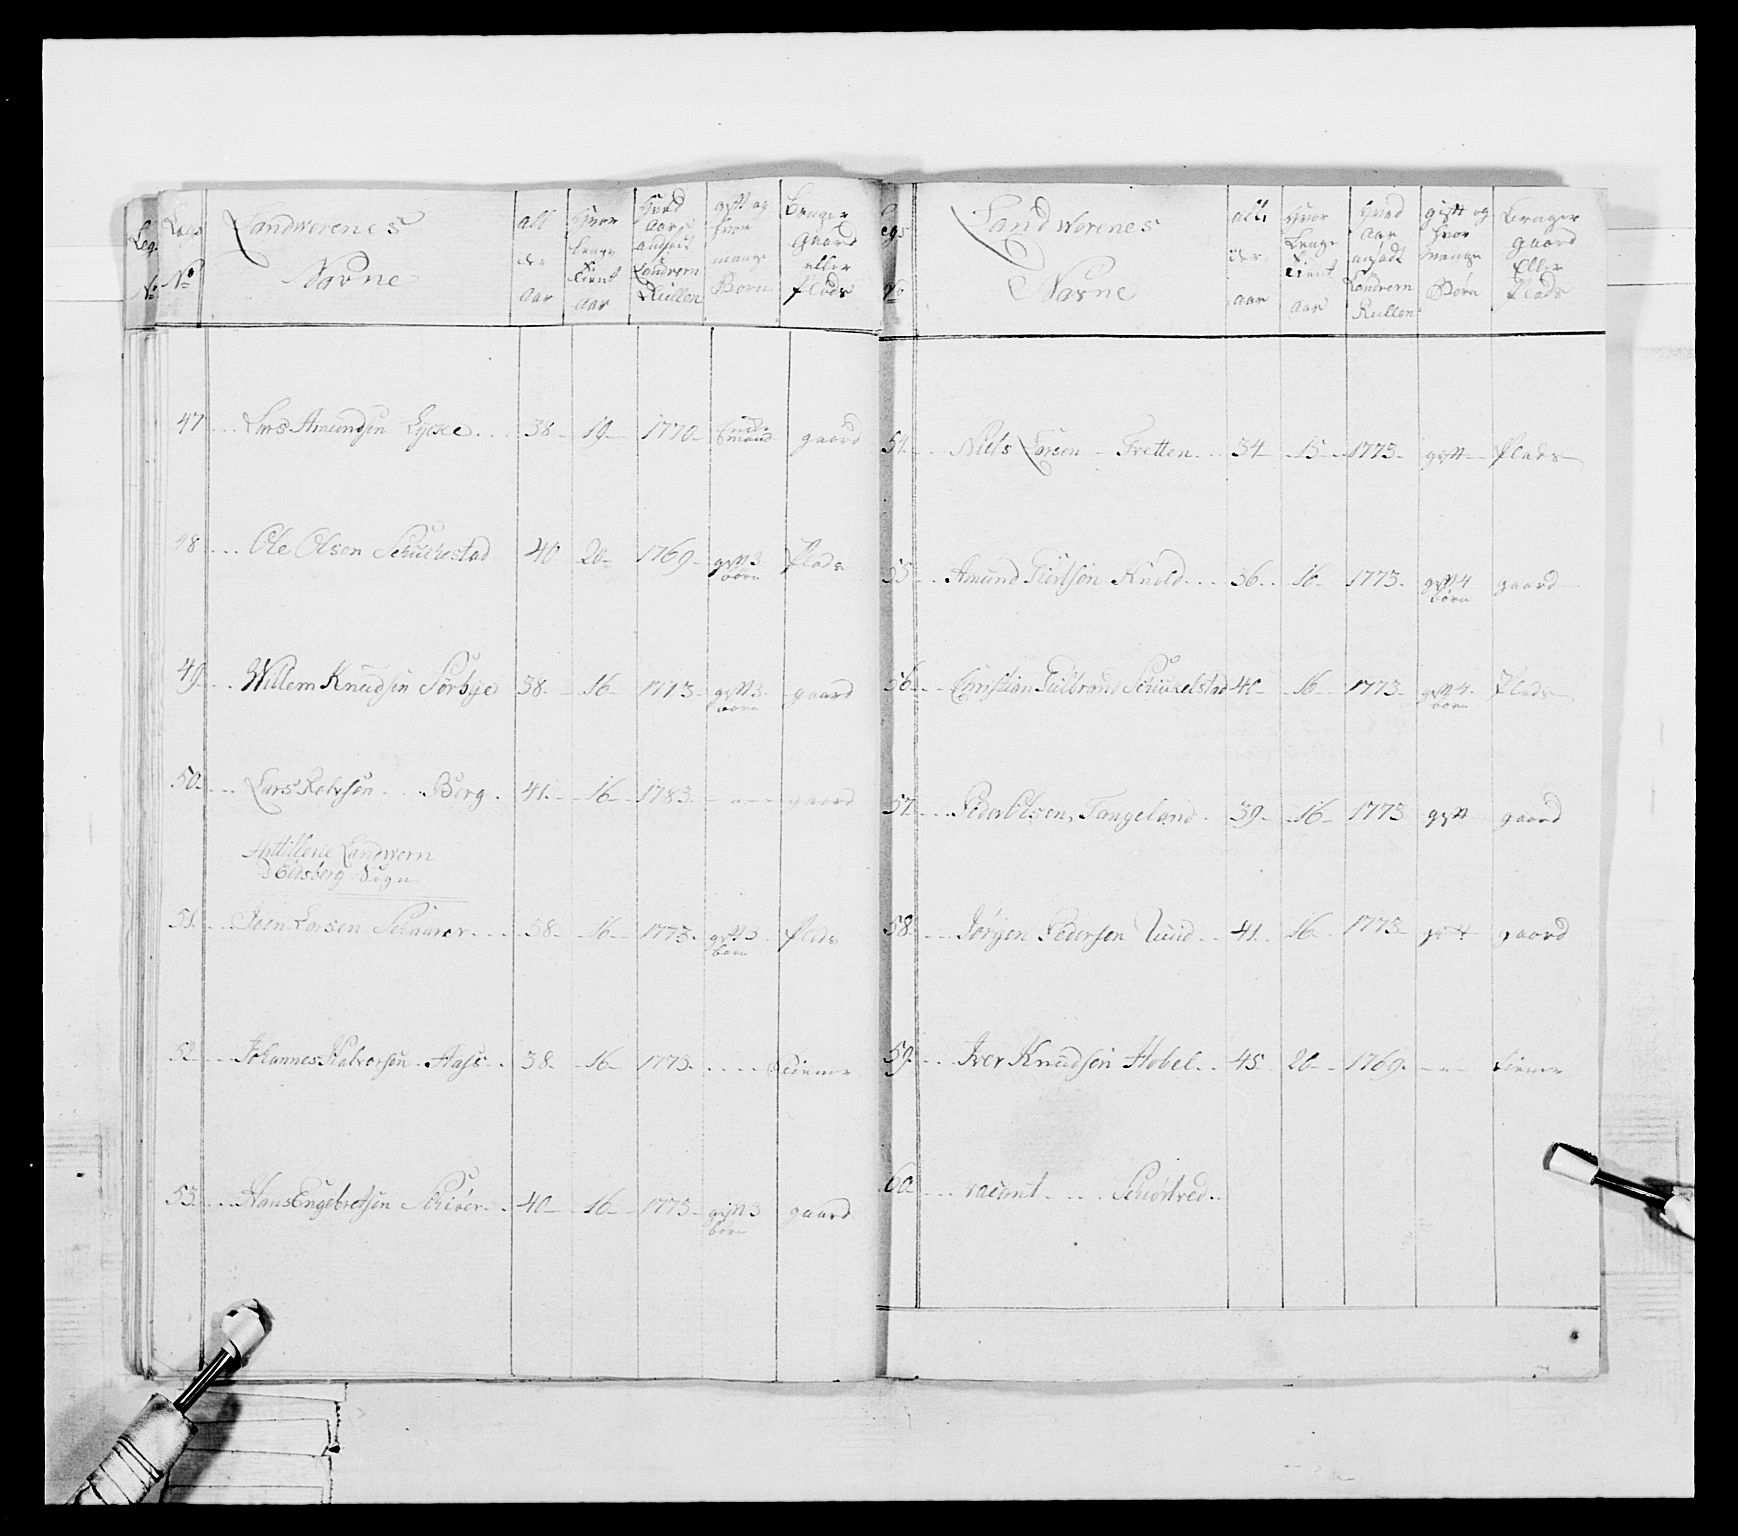 Legs No
Landwerenes Navne
all der aar
Hvor lenge tient aar
Hvad aar andsadt i Landvern Rullen
gift og hvor mange Børn
Beruger Gaard eller plads
47 Lars Amundsen 38 19 1770 Enke mand gaard
48 Ole Olsen 40 20 1769 gift 3 børn Plads
49 Willem Knudsen Sørbye 38 16 1773 gift 3 børn gaard
50 Lars Berg 41 16 1783 gaard
Artillerie Landvern
Eidsberg Sogn
51 Joen Larsen 38 16 1773 gift 3 børn Plads
52 Johannes Halvorsen 38 16 1773 tiener
53 Hans Engebretsen 40 16 1773 gift 3 børn gaard
Legs No
Landwerenes Navne
all der aar
Hvor Lenge tient aar
Hvad Aar ansadt Landvern Rullen
gift og hvor mange Børn
Beruger gaard Eller Plads
54 Niels Larsen Fretten 34 15 1773 gift Plads
55 Amund 36 16 1773 gift 4 børn gaard
56 Christian Gulbrands 40 16 1773 gift 4 børn Plads
57 Peder Olsen Tangeland 39 16 1773 gift gaard
58 Jørgen Pedersen Lund 41 16 1773 gift gaard
59 Iver Knudsen Hobel 45 20 1769 tiener
60 vacant